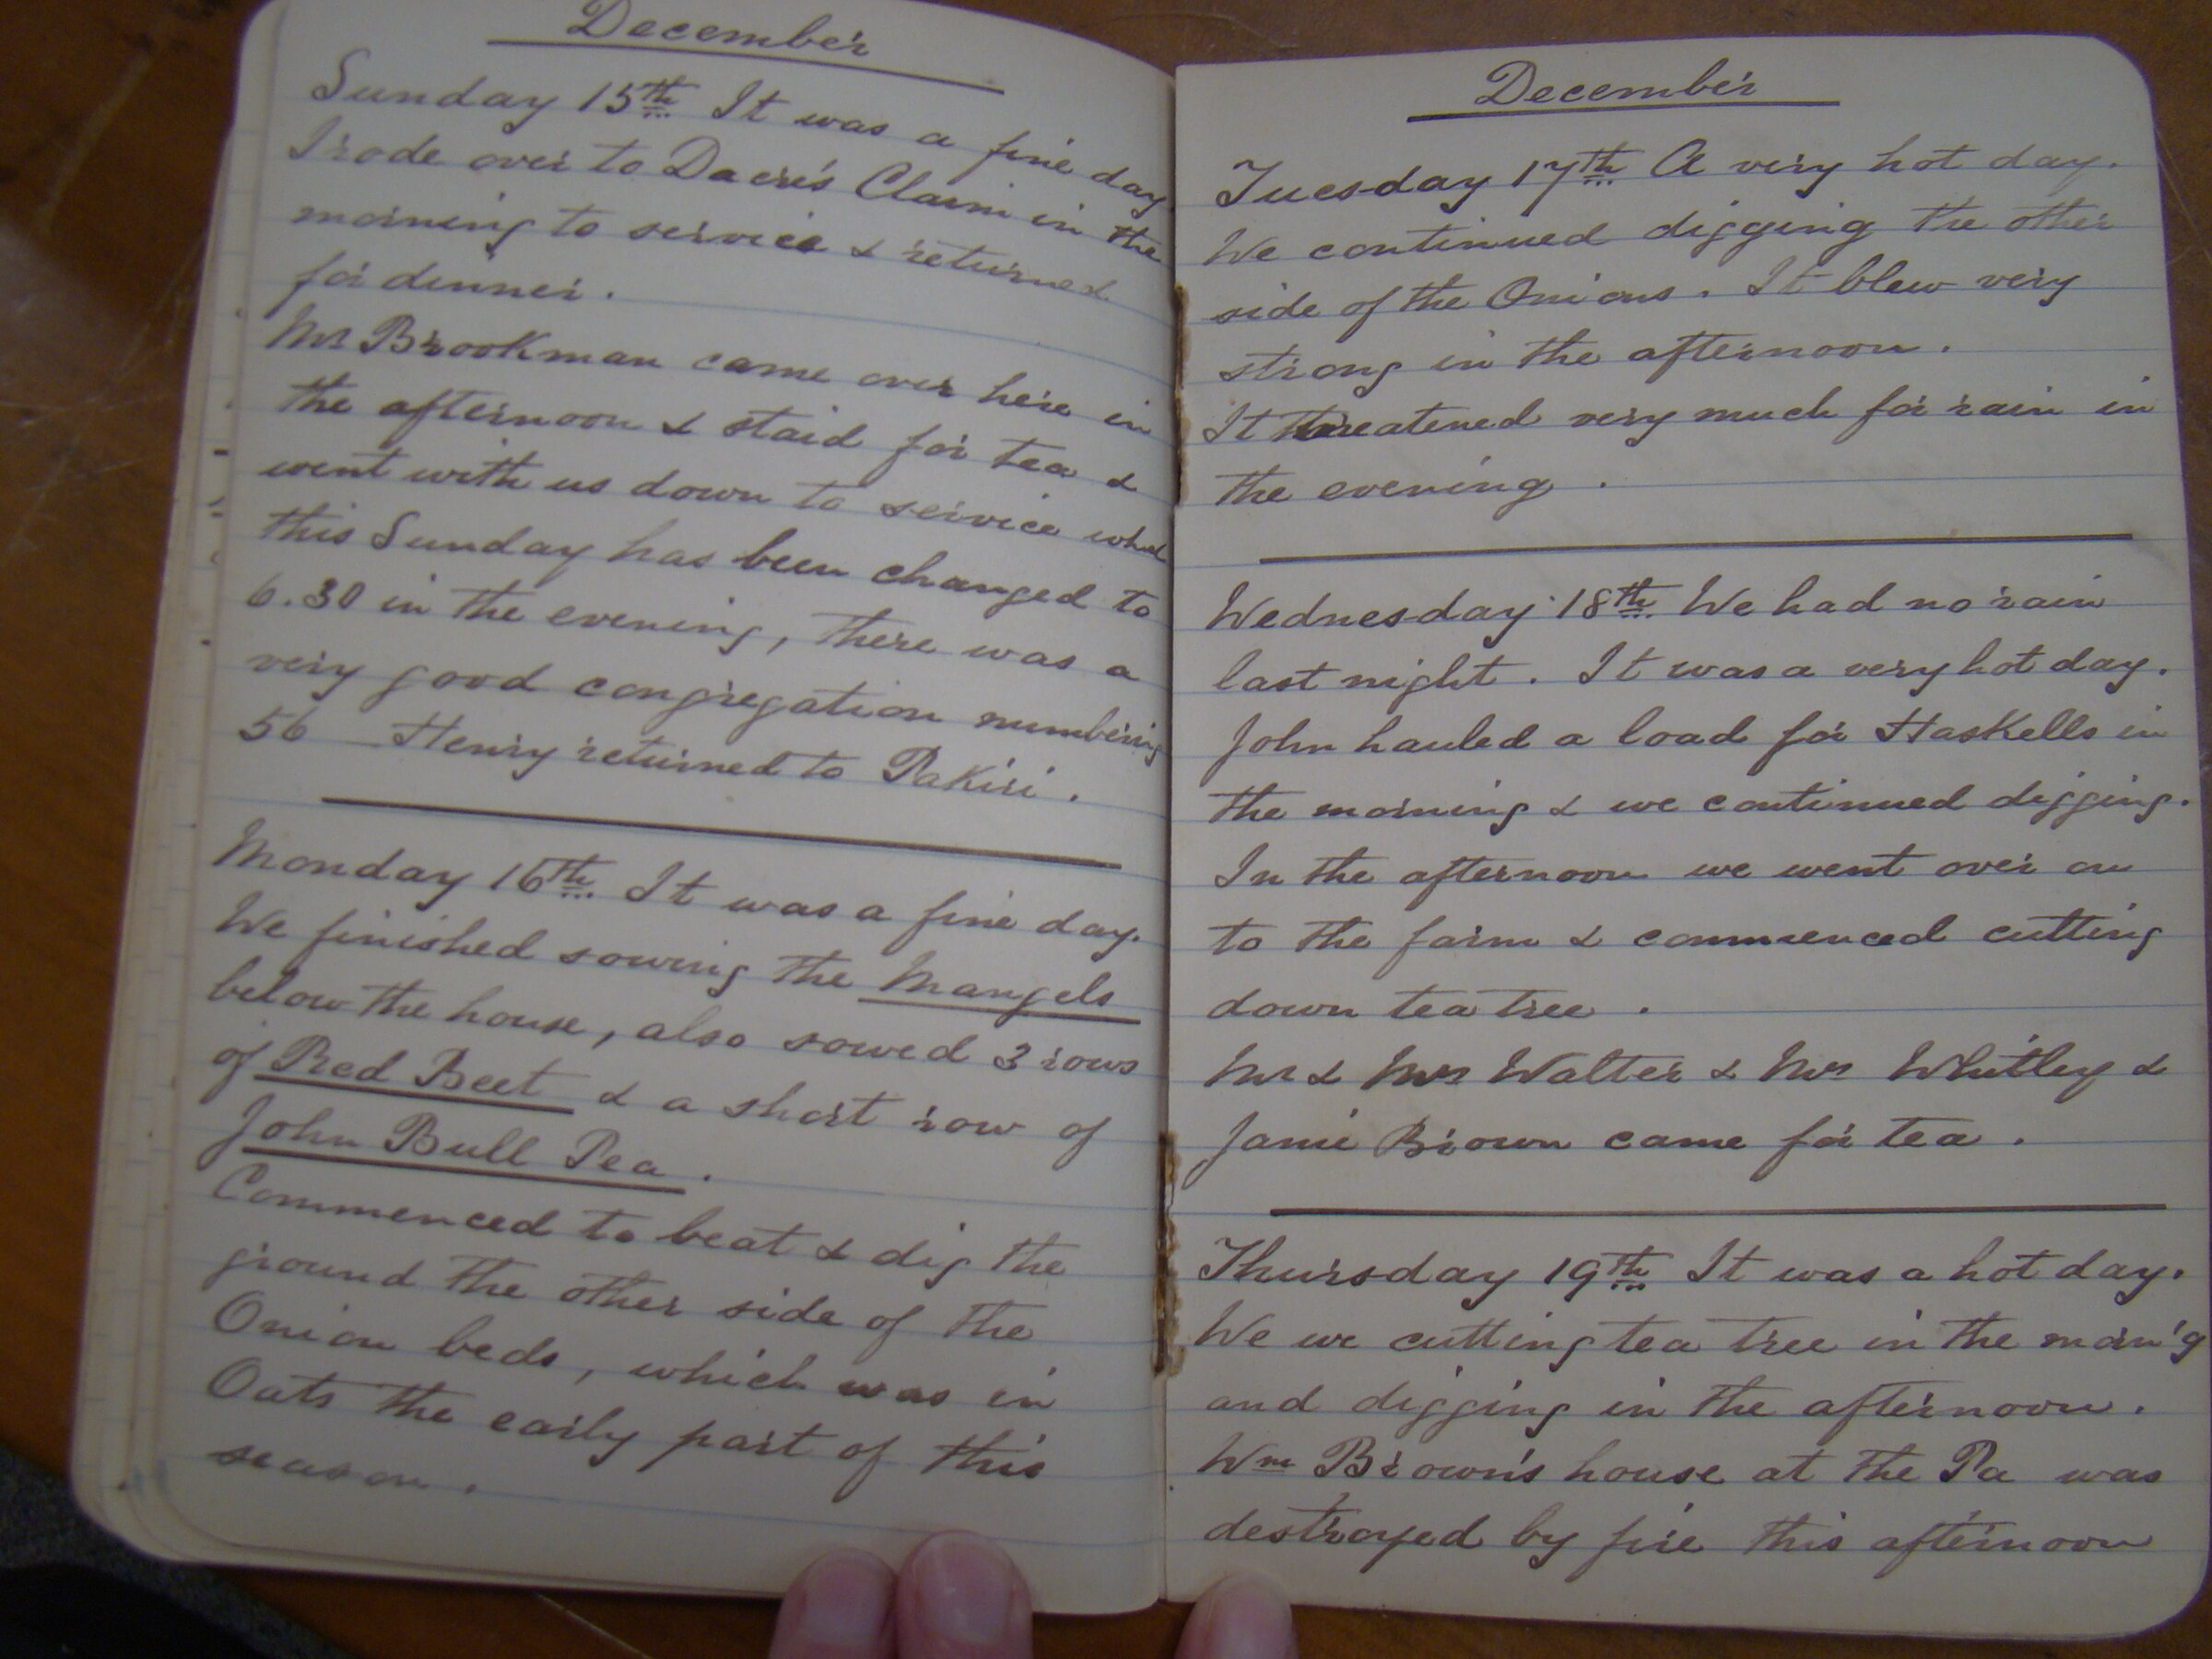 December
Sunday 15th It was a fine day
I rode over to Dacre's Claim in the
morning to service & returned
for dinner.
Mr Brookman came over here in
the afternoon & staid for tea &
went with us down to service which
this Sunday has been changed to
6.30 in the evening, there was a
very good congregation numbering
56 Henry returned to Pakiri.
Monday 16th It was a fine day.
We finished sowing the Mangels
below the house, also sowed 3 rows
of Red Beet & a short row of
John Bull Pea.
Commenced to beat & dig the
ground the other side of the
Onion beds, which was in
Oats the early part of this
season.
December
Tuesday 17th A very hot day.
We continued digging the other
side of the Onions. It blew very
strong in the afternoon.
It threatened very much for rain in
the evening.
Wednesday 18th We had no rain
last night. It was a very hot day.
John hauled a load for Haskells in
the morning & we continued digging.
In the afternoon we went over on
to the farm & commenced cutting
down tea tree.
Mr & Mrs Walter & Mrs Whitley &
Janie Brown came for tea.
Thursday 19th It was a hot day.
We we cutting tea tree in the morn'g
and digging in the afternoon.
Wm Brown's house at the Pa was
destroyed by fire this afternoon